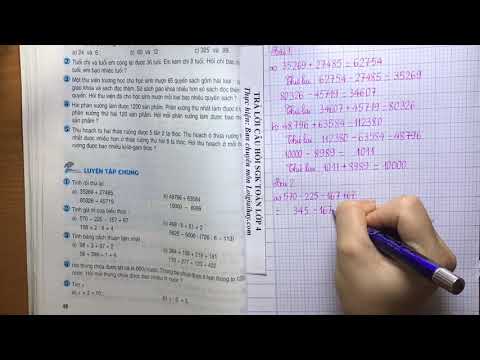 a) 24 và 6 ; b) 60 và 12 ; c) 325 và 99.
2 Tuổi chị và tuổi em cộng lại được 36 tuổi. Em kém chị 8 tuổi. Hỏi chị bao
tuổi, em bao nhiêu tuổi ?
3 Một thư viện trường học cho học sinh mượn 65 quyển sách gồm hai loại :
giáo khoa và sách đọc thêm. Số sách giáo khoa nhiều hơn số sách đọc thêm
quyển. Hỏi thư viện đã cho học sinh mượn mỗi loại bao nhiêu quyển sách ?
4 Hai phân xưởng làm được 1200 sản phẩm. Phân xưởng thứ nhất làm được
120 sản phẩm. Hỏi mỗi phân xưởng làm được bao
sản phẩm ?
5 Thu hoạch từ hai thửa ruộng được 5 tấn 2 tạ thóc. Thu hoạch ở thửa ruộng
nhất được nhiều hơn ở thửa ruộng thứ hai 8 tạ thóc. Hỏi thu hoạch ở mỗi
ruộng được bao nhiêu ki-lô-gam thóc ?
LUYỆN TẬP CHUNG
1 Tính rồi thử lại :
a) 35269 + 27485
80326 – 45719
b) 48796 + 63584
10000 – 8989
2 Tính giá trị của biểu thức :
a) 570 – 225 – 167 + 67
168 × 2 : 6 × 4
b) 468 : 6 + 61 × 2
5625 – 5000 : (726 : 6 – 113)
3 Tính bằng cách thuận tiện nhất :
a) 98 + 3 + 97 + 2
56 + 399 + 1 + 4
b) 364 + 136 + 219 + 181
178 + 277 + 123 + 422
4 Hai thùng chứa được tất cả là 600l nước. Thùng bé chứa được ít hơn thùng to 120l
nước. Hỏi mỗi thùng chứa được bao nhiêu lít nước ?
5 Tìm x :
a) x × 2 = 10 ;
b) x : 6 = 5.
48
TRẢ LỜI CÂU HỎI SGK TOÁN LỚP 4
Thực hiện: Ban chuyên môn Loigiaihay.com
Bài 1
a) 35269 + 27485 = 62754
Thử lại : 62754 - 27485 = 35269
80326 - 45719 = 34607
Thử lại : 34607 + 45719 = 80326
b) 48796 + 63584 = 112380
Thử lại : 112380 - 63584 = 48796
10000 - 8989 = 1011
Thử lại : 1011 + 8989 = 10000
Bài 2
a) 570 - 225 - 167 + 67
= 345 - 167